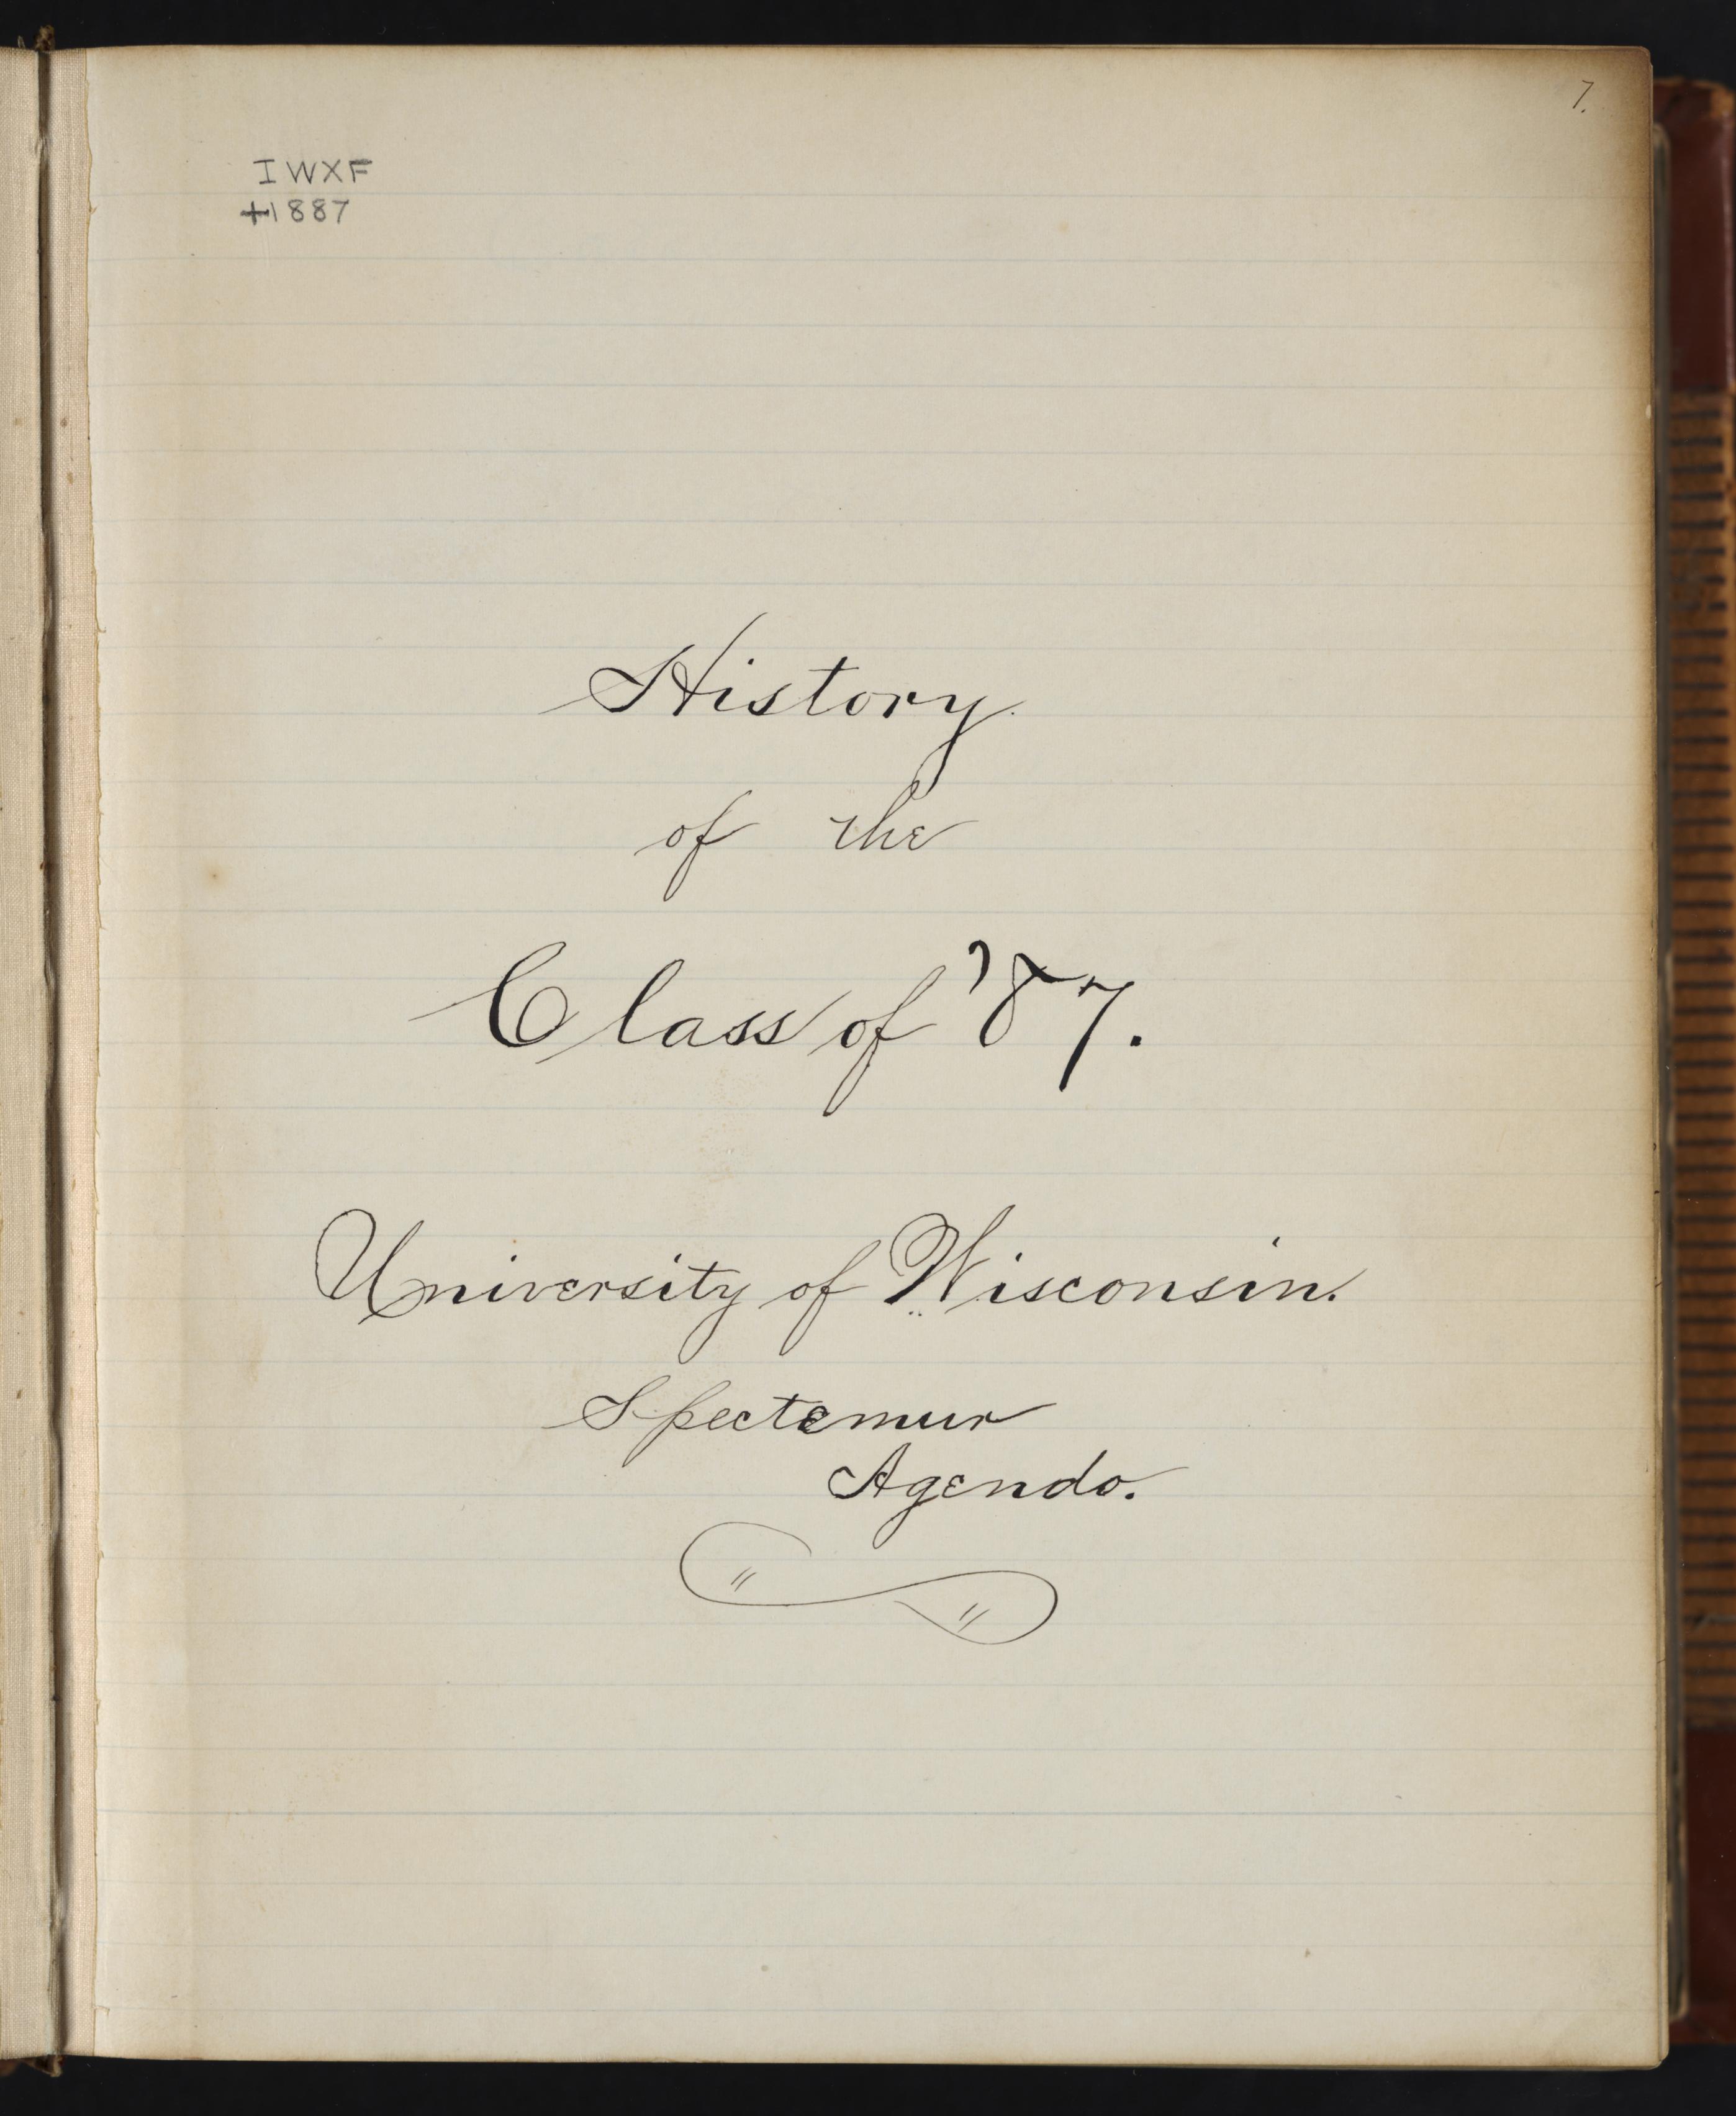 7.
IWXF
+1887
History.
of the
Class of '87.
University of Wisconsin.
Spectemur
Agendo.